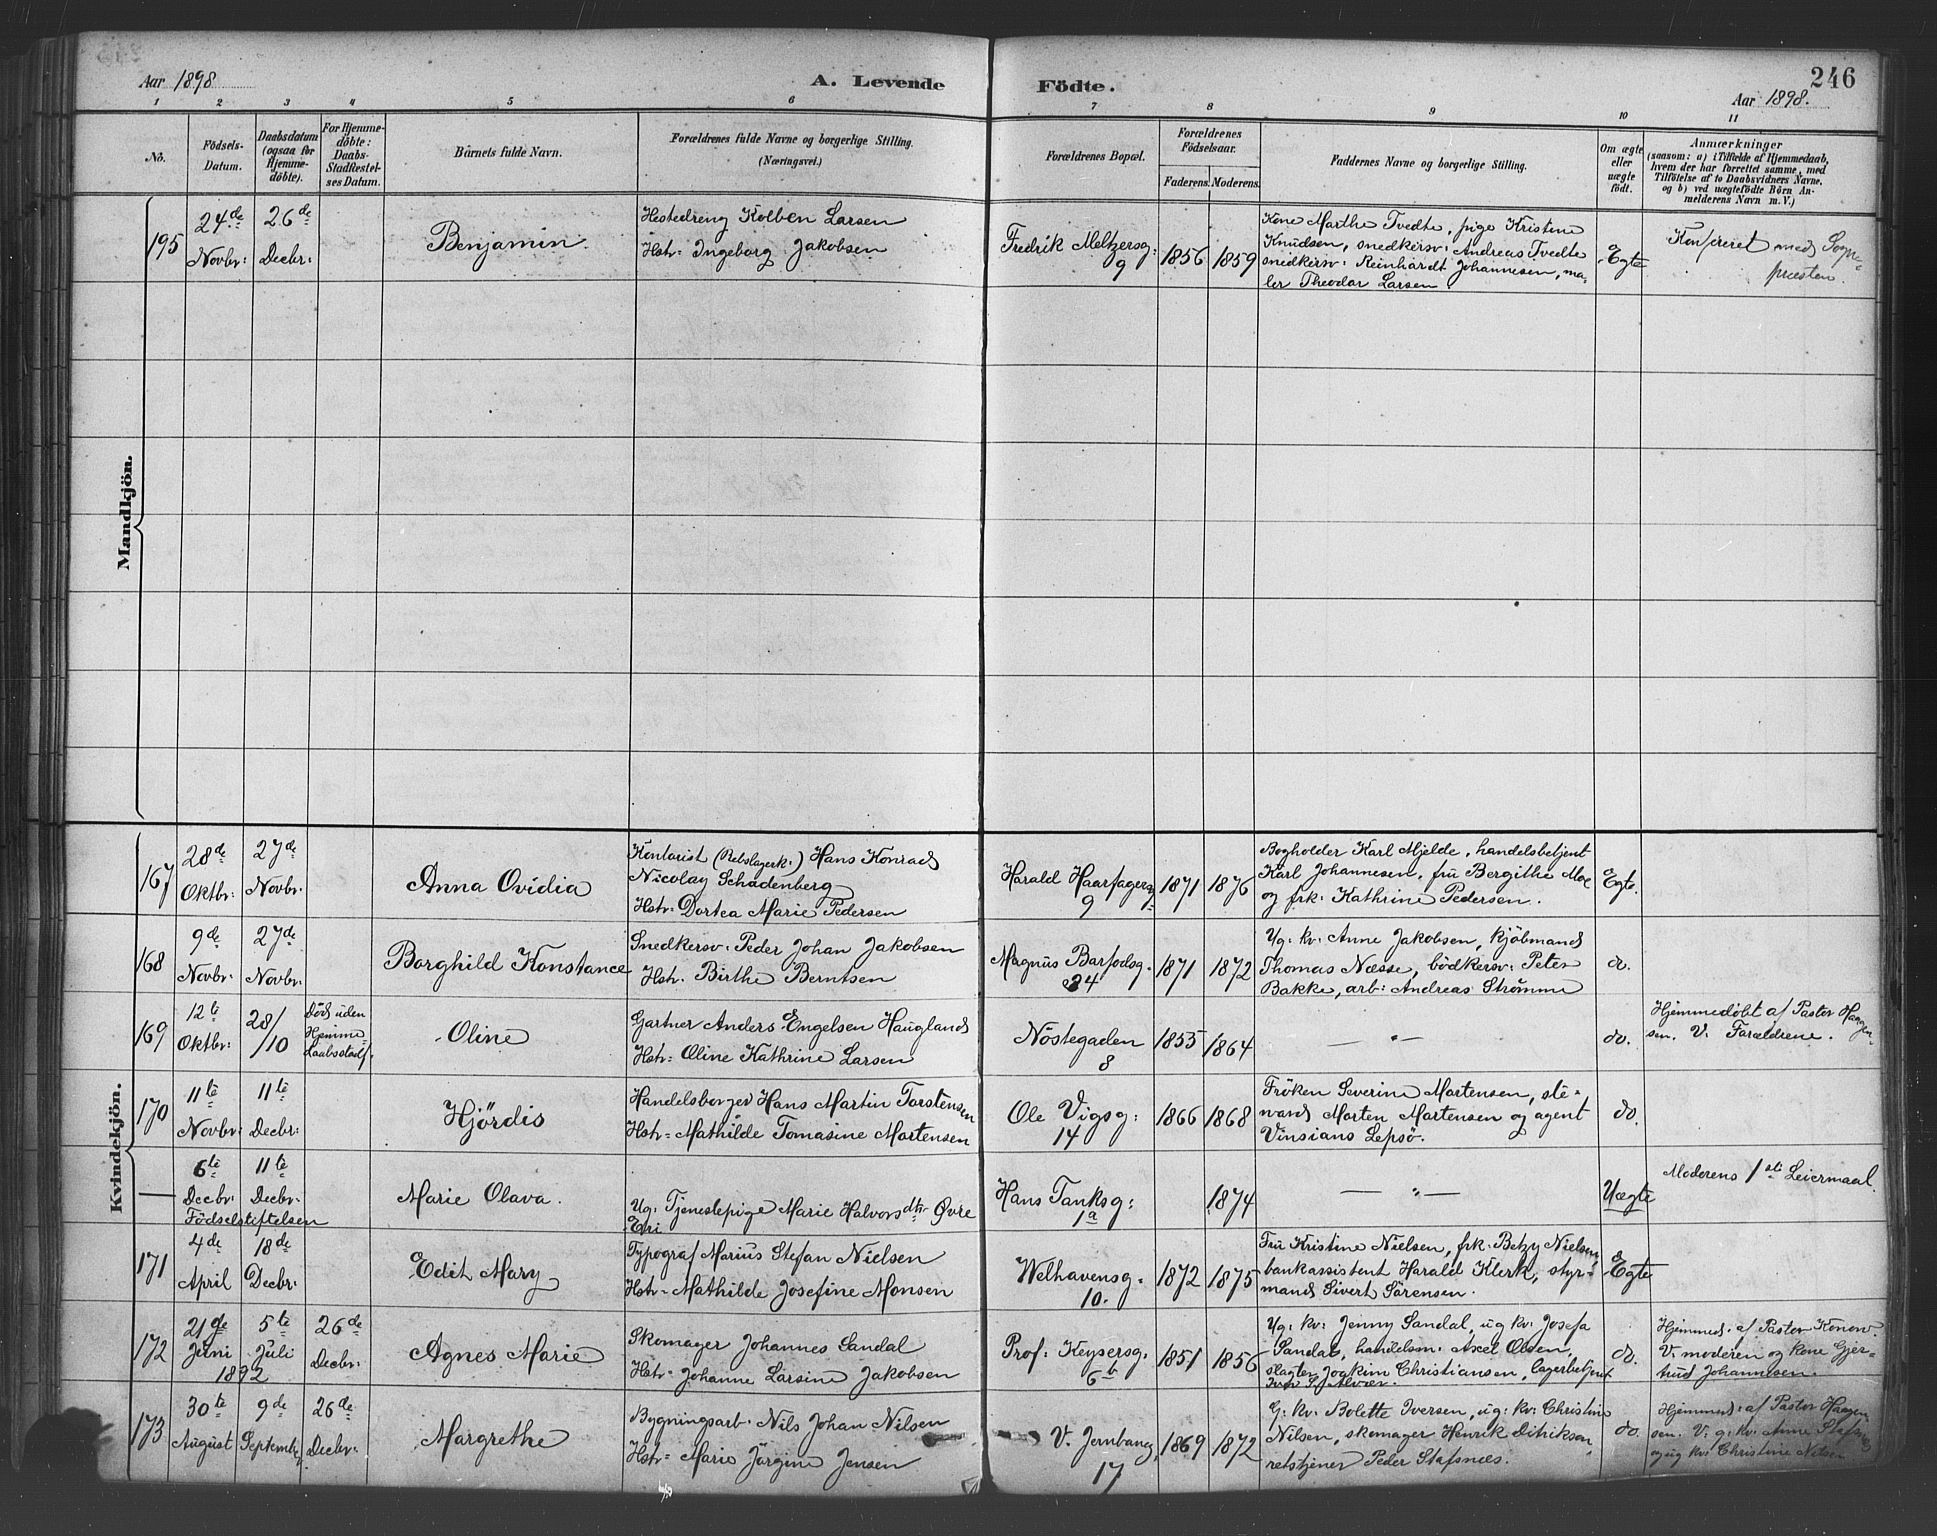 Aar 1898
A. Levende Födte.
246
Aar 1898.
1 2 3 4 5 6 7 8 9 10 11
No.
Födsels-
Datum.
Daabsdatum
(ogsaa for
Hjemme-
döbte).
For Hjemme-
döbte:
Daabs-
Stadfæstel-
ses Datum.
Barnets fulde Navn.
Forældrenes fulde Navne og borgerlige Stilling.
(Næringsvei.)
Forældrenes Bopæl.
Forældrenes
Födselsaar.
Faderens. Moderens.
Faddernes Navne og borgerlige Stilling.
Om ægte
eller
uægte
født.
Anmærkninger
(saasom: a) i Tilfælde af Hjemmedaab,
hvem der har forrettet samme, med
Tilföielse af to Daabsvidners Navne,
og b) ved uægtefödte Börn An-
melderens Navn m. V.)
Mandkjön.
195
24de
Novbr:
26de
Decbr:
Benjamin.
Hestedreng Kolben Larsen
Hstr. Ingeborg Jakobsen
Fredrik Meltzersg:
9
1856
1859
Kone Marthe Tvedte, pige Kristine
Knudsen, snedkersv: Andreas Tvedte
snedkersv: Reinhardt Johannesen, ma-
ler Theodor Larsen
Egte
Konfereret med Sogne-
præsten.
Kvindekjön.
167
28de
Oktbr:
27de
Novbr:
Anna Ovidia
Kontorist (Rebslagerk:) Hans Konrad
Nicolay Schadenberg
Hstr. Dortea Marie Pedersen
Harald Haarfagersg:
9
1871
1876
Bogholder Karl Mjelde, handelsbetjent
Karl Johannesen, fru Bergithe Moe
og frk: Kathrine Pedersen.
Egte.
168
9de
Novbr:
27de
Novbr:
Borghild Konstance
Snedkersv: Peder Johan Jakobsen
Hstr. Birthe Berntsen
Magnus Barfodsg.
34
1871
1872
Ug: kv: Anne Jakobsen, kjöbmand
Thomas Næsse, bödkersv: Peter
Bakke, arb: Andreas Strömme
do.
169
12te
Oktbr:
28/10
Död uden
Hjemme-
daabsstadf.
Oline
Gartner Anders Engelsen Haugland
Hstr. Oline Kathrine Larsen
Nöstegaden
8
1855
1864
— " —
do.
Hjemmedöbt af Pastor Haagen-
sen. V. Forældrene.
170
11te
Novbr:
11te
Decbr:
Hjördis
Handelsborger Hans Martin Torstensen
Hstr. Mathilde Tomasine Martensen
Ole Vigsg:
14
1866
1868
Fröken Severine Martensen, ste-
ward Morten Martensen og agent
Vinsians Lepsö.
do.
—
6te
Decbr:
Födselstiftelsen
11te
Decbr.
Marie Olava.
Ug: Tjenestepige Marie Halvorsdtr Øvre
Eri
Hans Tanksg:
1a
1874
— " —
Uægte
Moderens 1ste Leiermaal.
171
4de
April
18de
Decbr:
Edit Mary
Typograf Marius Stefan Nielsen
Hstr. Mathilde Josefine Monsen
Welhavensg.
10.
1872
1875
Fru Kristine Nielsen, frk: Betzy Nielsen,
bankassistent Harald Klerk, styr-
mand Sivert Sörensen.
Egte
172
21de
Juni
1892
5te
Juli
26de
Decbr:
Agnes Marie
Skomager Johannes Sandal
Hstr. Johanne Larsine Jakobsen
Prof: Keysersg.
6b
1851
1856
Ug: kv: Jenny Sandal, ug kv: Josefa
Sandal, handelsm: Axel Olsen,
slagter Joakim Christiansen, lagerbetjent
do.
Hjemmed: af Pastor Konow.
V. moderen og kone Gjer-
trud Johannesen.
173
30te
August
9de
Septembr
26de
Decbr.
Margrethe
Bygningsarb. Nils Johan Nilsen
Hstr. Marie Jörgine Jensen
V. Jernbaneg.
17
1869
1872
G: kv: Bolette Iversen, ug: kv: Christine
Nilsen, skomager Henrik Dithiksen,
retstjener Peder Stafsnæs.
do.
Hjemmed: af Pastor Haagen-
sen. V. g: kv: Anne Stafsnæs
og ug kv: Christine Nilsen